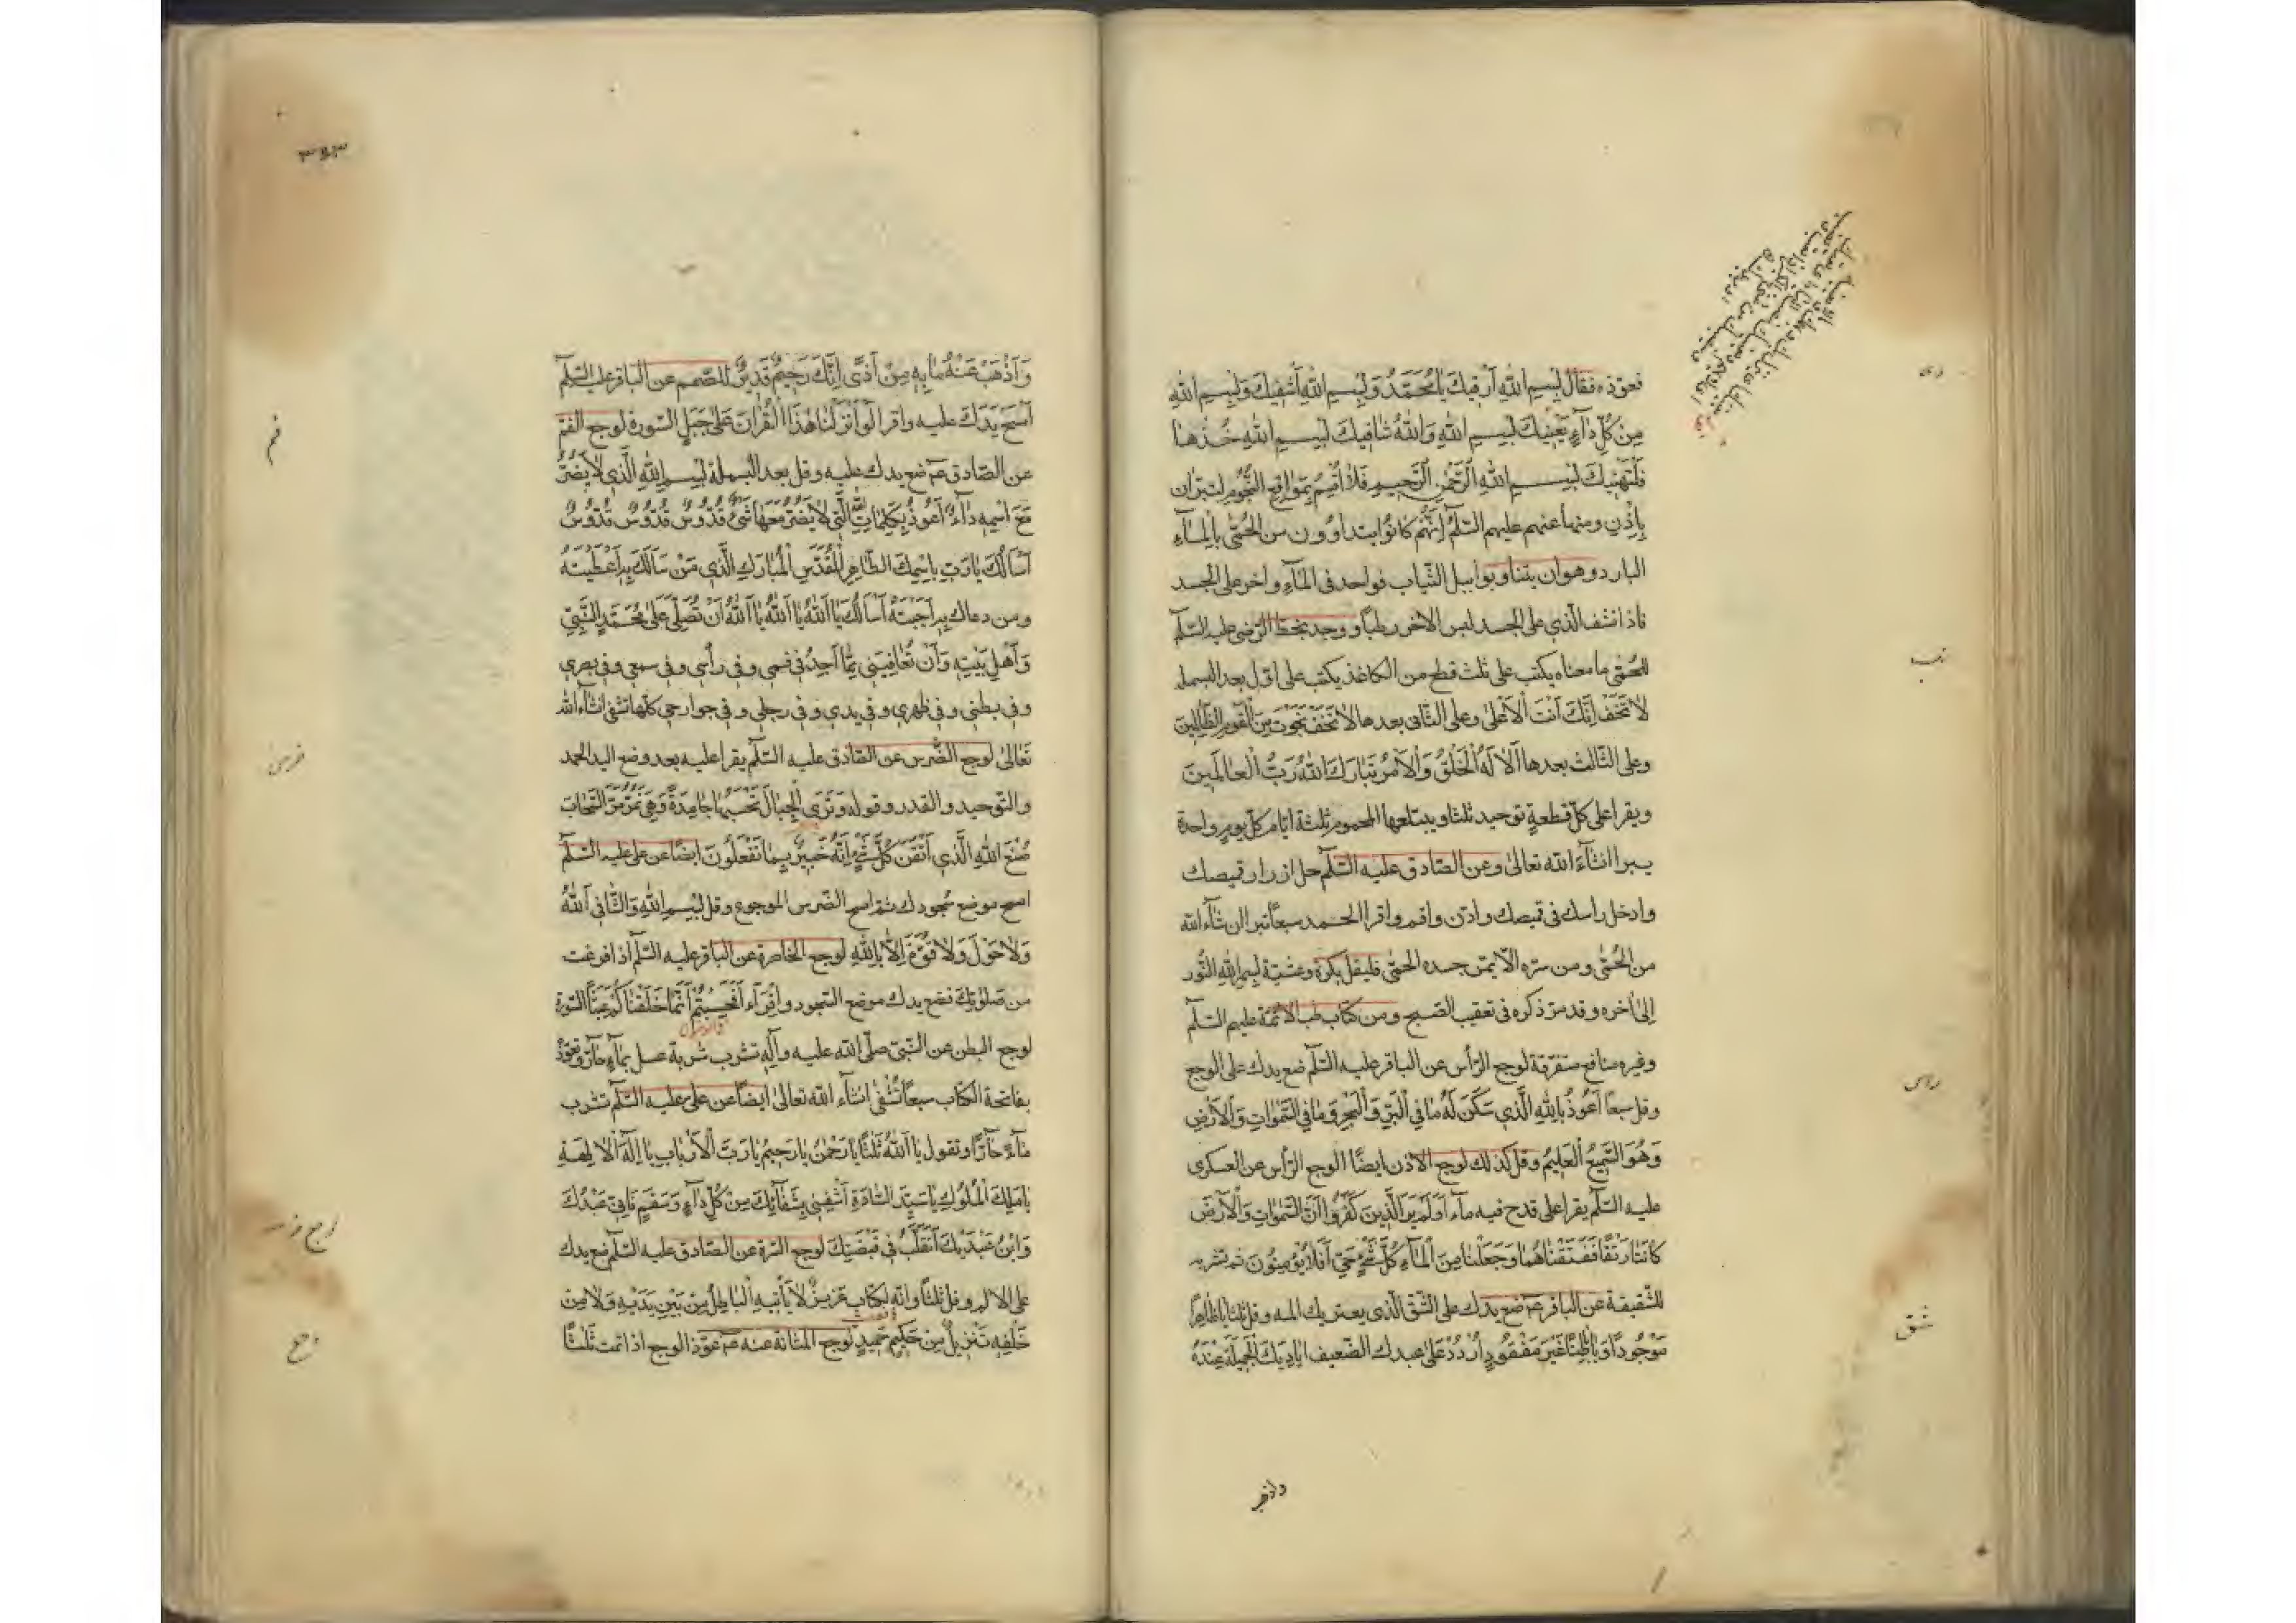 فعوّذه فقال بِسمِ اللهِ اَرقيكَ يا مُحَمَّدُ وَبِسمِ اللهِ اَشفيكَ وَبِسمِ اللهِ
مِن كُلِّ دآءٍ يَعنيكَ بِسمِ اللهِ وَاللهُ شافيكَ بِسمِ اللهِ خُذها
فَلتَهنيكَ بِسمِ اللهِ الرَّحمٰنِ الرَّحيمِ فَلا اُقسِمُ بِمَواقِعِ النُّجُومِ لتبرأن
بِاِذنِ ومنها عنهم عليهم السّلام اِنَّهُم كانُوا يتداوون من الحُمّى بالمآءِ
البارد وهو ان يتناوبوا ببل الثّياب فواحد في المآء واخر على الجسد
فاذا نشف الّذي على الجسد لبس الاخر رطباً ووجد بخط الرّضي عليه السّلام
للحُمّى ما معناه يكتب على ثلث قطع من الكاغذ يكتب على اوّل بعد البسملة
لا تَخَف اِنَّكَ اَنتَ الاَعلى وعلى الثّاني بعدها لا تَخَف نَجَوتَ مِنَ القَومِ الظّالِمينَ
وعلى الثّالث بعدها اَلا لَهُ الخَلقُ وَالاَمرُ تَبارَكَ اللهُ رَبُّ العالَمينَ
ويقرا على كلّ قطعةٍ توحيد ثلثا ويبتلعها المحموم ثلثة ايّام كلّ يومٍ واحدة
يبرا انشآءَ الله تعالىٰ وعن الصّادق عليه السّلام حل ازرار قميصك
وادخل راسك في قميصك واذّن واقم واقرا الحمد سبعاً تبرا ان شآء الله
من الحُمّى ومن سرّه الّا يمسّ جسده الحمّى فليقل بكرة وعشيّة بسم الله النّور
اِلىٰ اٰخره وقد مرّ ذكره في تعقيب الصّبح ومن كتاب طب الائمّة عليهم السّلام
وغيره منافع متفرّقة لوجع الرّأس عن الباقر عليه السّلام ضع يدك على الوجع
وقل سبعا اَعُوذُ بِاللهِ الَّذي سَكَنَ لَهُ ما فِي البَرِّ وَالبَحرِ وَما فِي السَّمٰواتِ وَالاَرضِ
وَهُوَ السَّميعُ العَليمُ وقل كذلك لوجع الاذن ايضًا لوجع الرّأس عن العسكرى
عليه السّلام يقرا على قدح فيه مآء اَوَلَم يَرَ الَّذينَ كَفَرُوا اَنَّ السَّمٰواتِ وَالاَرضَ
كانَتا رَتقًا فَفَتَقناهُما وَجَعَلنا مِنَ المآءِ كُلَّ شَيءٍ حَيٍّ اَفَلا يُؤمِنُونَ ثم تشربه
للشّقيقة عن الباقر عم ضع يدك على الشّق الّذي يعتريك المه وقل ثلثا يا ظاهِرًا
مَوجُودًا وَيا باطِنًا غَيرَ مَفقُودٍ اُردُد عَلىٰ عبدك الضّعيف اياديكَ الجَميلَةَ عِندَهُ
راس
شق
واذهب
٣٤٣
وَاَذهِب عَنهُ ما بِهِ مِن اَذًى اِنَّكَ رَحيمٌ قَديرٌ للصّمم عن الباقر عليه السّلام
اِمسَح يَدَكَ عليه واقرا لَو اَنزَلنا هٰذَا القُراٰنَ عَلىٰ جَبَلٍ السّورة لوجع الفم
عن الصّادق عم ضع يدك عليه وقل بعد البسملة بِسمِ اللهِ الَّذي لا يَضُرُّ
مَعَ اسمِهِ دآءٌ اَعُوذُ بِكَلِماتِ اللهِ الَّتي لا يَضُرُّ مَعَها شَيءٌ قُدُّوسٌ قُدُّوسٌ قُدُّوسٌ
اَسأَلُكَ يا رَبِّ بِاسمِكَ الطّاهِرِ المُقَدَّسِ المُبارَكِ الَّذي مَن سَأَلَكَ بِهِ اَعطَيتَهُ
ومن دعاك بِهِ اَجَبتَهُ اَسأَلُكَ يا اَللهُ يا اَللهُ يا اَللهُ اَن تُصَلِّيَ عَلىٰ مُحَمَّدٍ النَّبِيِّ
وَاَهلِ بَيتِهِ وَاَن تُعافِيَني مِمّا اَجِدُ في فمي وفي رأسي وفي سمعي وفي بصري
وفي بطني وفي ظهري وفي يدي وفي رجلي وفي جوارحي كلّها تشفى انشآء الله
تَعالىٰ لوجع الضّرس عن الصّادق عليه السّلام يقرا عليه بعد وضع اليد الحمد
والتّوحيد والقدر وقوله وَتَرَى الجِبالَ تَحسَبُها جامِدَةً وَهِيَ تَمُرُّ مَرَّ السَّحابِ
صُنعَ اللهِ الَّذي اَتقَنَ كُلَّ شَيءٍ اِنَّهُ خَبيرٌ بِما تَفعَلُونَ ايضًا عن علي عليه السّلام
امسح موضع سُجودك ثمّ امسح الضّرس الموجوع وقل بِسمِ اللهِ وَالشّافي اللهُ
وَلا حَولَ وَلا قُوَّةَ اِلّا بِاللهِ لوجع الخاصرة عن الباقر عليه السّلام اذا فرغت
من صلوٰتِكَ فضع يدك موضع السّجود واقراء اَفَحَسِبتُم اَنَّما خَلَقناكُم عَبَثًا السّورة
لوجع البطن عن النّبيّ صلّى الله عليه وآلِه تشرب شربة عسل بمآءٍ حآرٍّ وتعوّذ
بفاتحة الكتاب سبعاً تُشفى انشآء الله تعالىٰ ايضًا عن علي عليه السّلام تشرب
مآءً حآرًّا وتقول يا اَللهُ ثَلثًا يا رَحمٰنُ يا رَحيمُ يا رَبَّ الاَربابِ يا اِلٰهَ الاٰلِهَةِ
يا مَلِكَ المُلُوكِ يا سَيِّدَ السّادَةِ اِشفِني بِشِفآئِكَ مِن كُلِّ دآءٍ وَسَقَمٍ فَاِنّي عَبدُكَ
وَابنُ عَبدَيكَ اَتَقَلَّبُ في قَبضَتِكَ لوجع السّرة عن الصّادق عليه السّلام ضع يدك
على الالم وقل ثلثاً وَاِنَّهُ لَكِتابٌ عَزيزٌ لا يَأتيهِ الباطِلُ مِن بَينِ يَدَيهِ وَلا مِن
خَلفِهِ تَنزيلٌ مِن حَكيمٍ حَميدٍ لوجع المثانة عنه عم عوّذ الوجع اذا نمت ثلثًا
فم
ضرس
وجع